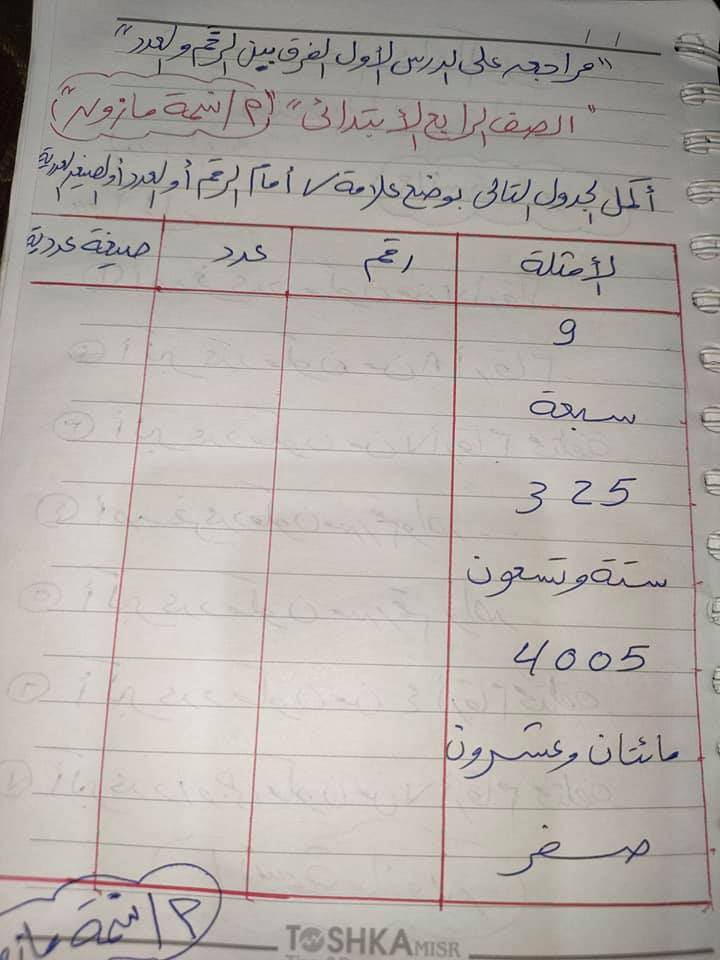 ١ ١
"مراجعه على الدرس الأول الفرق بين الرقم والعدد"
"الصف الرابع الابتدائى" "م/شمة مازون"
أكمل الجدول التالى بوضع علامة √ أمام الرقم أو العدد أو الصيغه العددية
الأمثلة رقم عدد صيغة عددية
9
سبعة
3 25
ستة وتسعون
4005
مائتان وعشرون
صفر
م/شمة
TOSHKA MISR